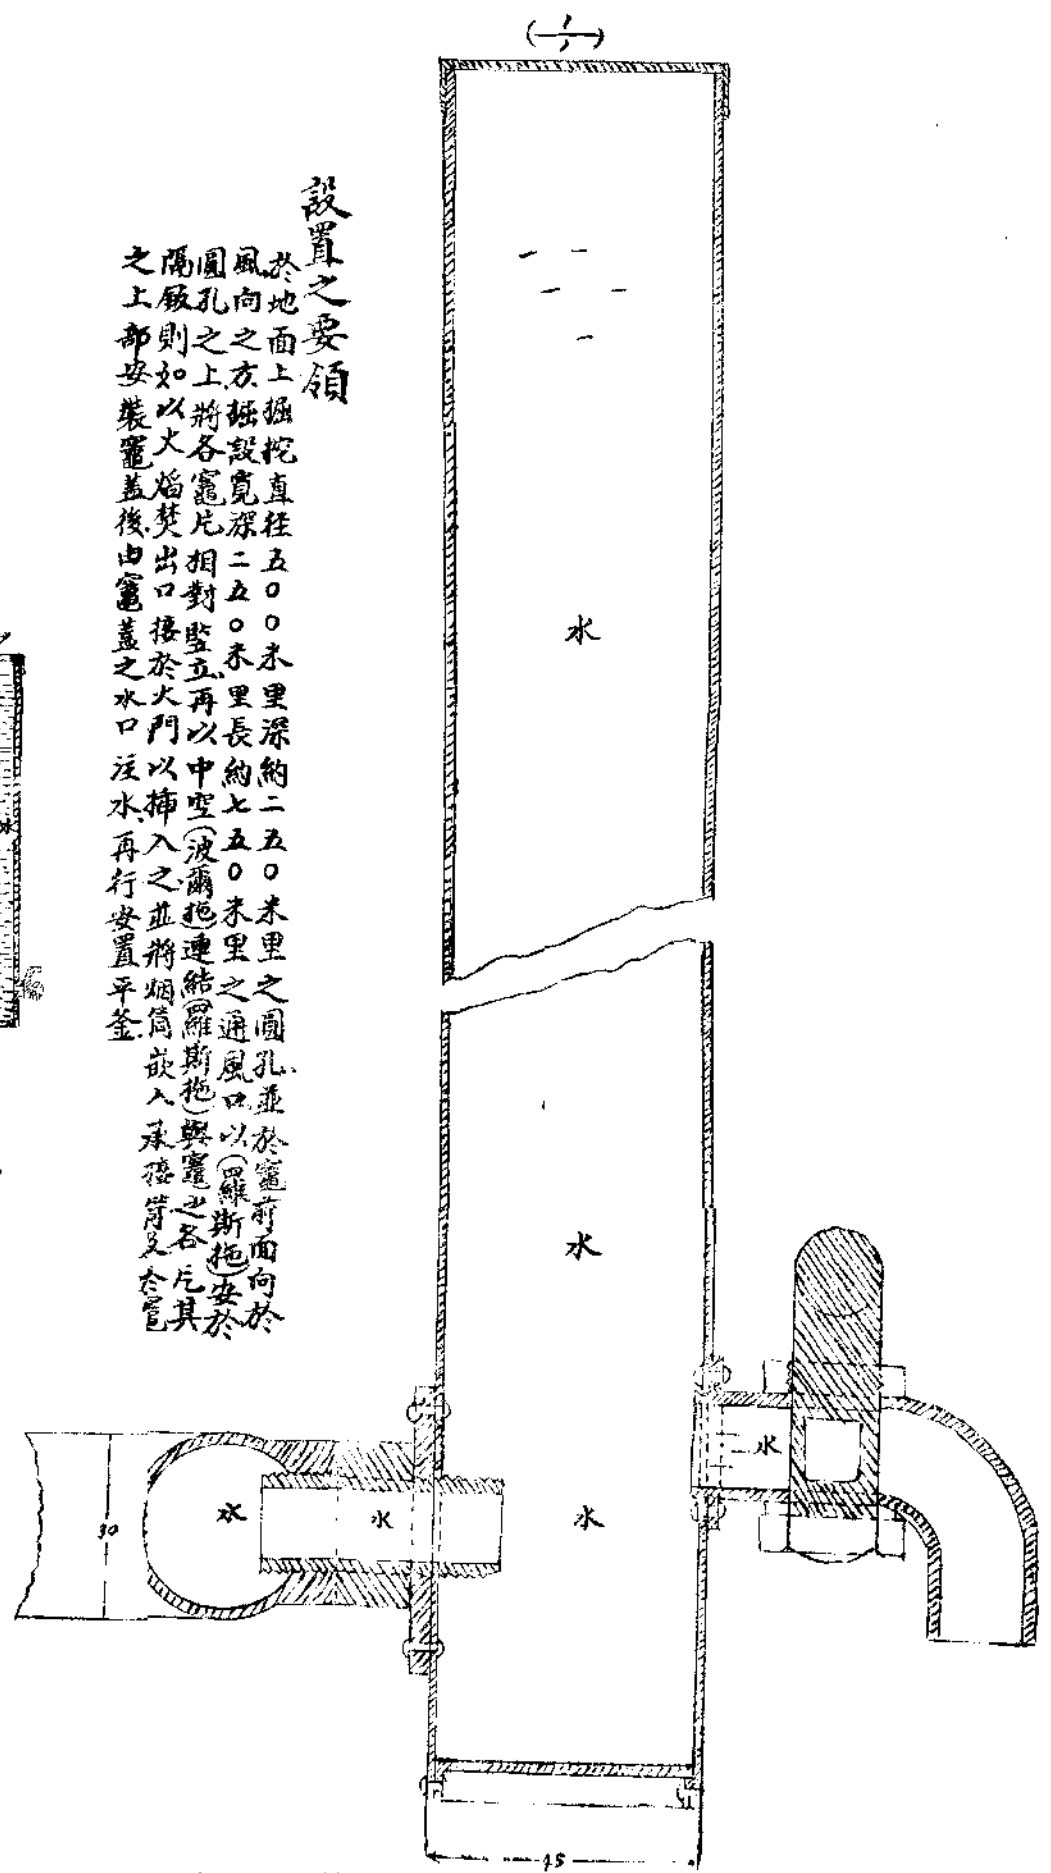 (1/1)
設置之要領
於地面上掘挖直径五〇〇米里深約二五〇米里之圓孔並於竈前面向於
風向之方掘設寬深二五〇米里長約七五〇米里之通風口以(羅斯拖)安於
圓孔之上將各竈片相對監立再以中空(波爾拖)連結(羅斯拖)與竈之各片其
隔鈑則如以火焰焚出口接於火門以插入之並將烟筒嵌入承接筒及於竈
之上部安裝竈蓋後由竈蓋之水口注水再行安置平釜
水
水
水
水
水
水
水
30
45